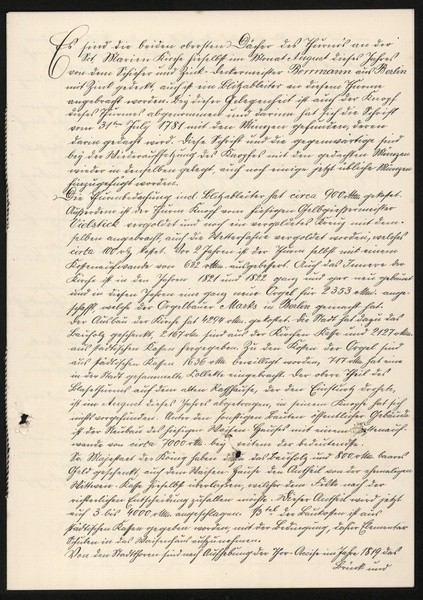 Es sind die beiden obersten Dächer des Thurms an der
St. Marien Kirche hieselbst im Monat August dieses Jahres
von dem Schiefer und Zink-Deckermeister Borrmann aus Berlin
mit Zink gedeckt, auch ist ein Blitzableiter an diesem Thurm
angebracht worden. Bey dieser Gelegenheit ist auch der Knopf
dieses Thurms abgenommen und darinn hat sich die Schrift
vom 31ten July 1781 mit den Münzen gefunden, deren
darin gedacht wird. Diese Schrift und die gegenwärtige sind
bey der Wiederaufsetzung des Knopfes mit den gedachten Münzen
wieder in denselben gelegt, auch noch einige jetzt übliche Münzen
hinzugefügt worden.
Die Thurmbedachung incl. Blitzableiter hat circa 900 gekostet.
Außerdem ist der Thurm Knopf vom hiesigen Gelbgießermeister
vergoldet und noch ein vergoldetes Kreuz auf demselben
selben angebracht, auch die Wetterfahne vergoldet worden, welches
circa 100 kostet. Vor 2 Jahren ist der Thurm selbst mit einem
Kostenaufwande von 682 ausgebessert. Auch das Innere der
Kirche ist in den Jahren 1821 und 1822 ganz und gar neu gebaut
und in diesen Jahren eine ganz neue Orgel für 3353 angeschafft
schafft, welche der Orgelbauer Marx in Berlin gemacht hat.
Der Ausbau der Kirche hat 4294 gekostet, die Stadt hat dazu das
Bauholz geschenkt, 2167 sind aus der Kirchen Casse und 2127
aus städtischen Kassen hergegeben. Zu den Kosten der Orgel sind
aus städtischen Kassen 1636 bewilligt worden, 717 hat eine
in der Stadt gesammelte Collecte eingebracht. Der obere Theil des
auf dem alten Rathhause, der den Einsturz drohete,
ist im August dieses Jahres abgetragen, in seinem Knopf hat sich
nichts vorgefunden. Unter den sonstigen Bauten öffentlicher Gebäude
ist der Neubau des hiesigen Waisen Hauses mit einem
wande von circa 7000 bey weitem der bedeutendste.
Se Majestaet der König haben dazu das Bauholz und 800 baares
Geld geschenkt, auch dem Waisen Hause den Antheil von der ehemaligen
Wittwen Kasse hieselbst überlassen, welcher dem Fisko nach der
richterlichen Entscheidung zufallen müßte. Dieser Antheil wird jetzt
auf 3 bis 4000 angeschlagen. der Baukosten ist aus
städtischen Kassen gegeben worden, mit der Bedingung, daher Elementar
Schulen in das Waisenhaus aufzunehmen.
Von den Stadtthoren sind nach Aufhebung der Thor-Accise im Jahre 1819 das
Brück und